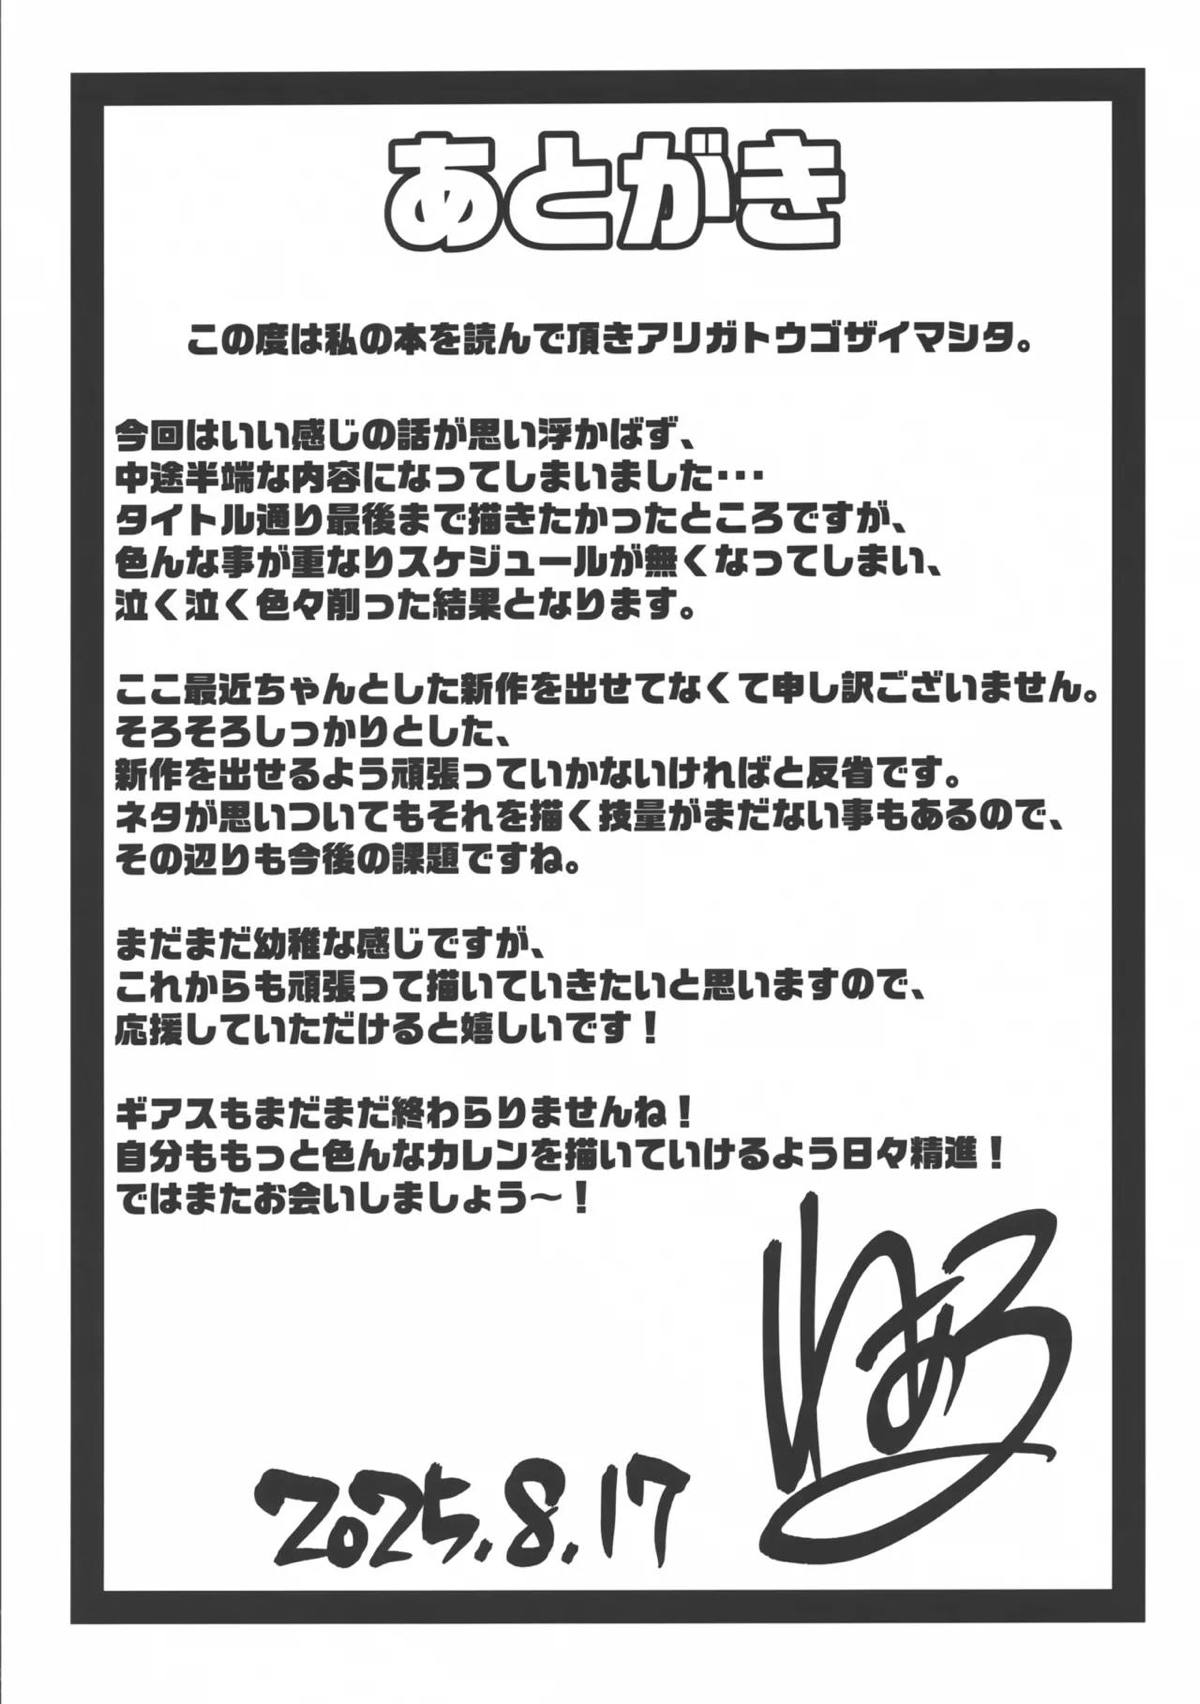 あとがき
この度は私の本を読んで頂きアリガトウゴザイマシタ。
今回はいい感じの話が思い浮かばず、
中途半端な内容になってしまいました･･･
タイトル通り最後まで描きたかったところですが、
色んな事が重なりスケジュールが無くなってしまい、
泣く泣く色々削った結果となります。
ここ最近ちゃんとした新作を出せてなくて申し訳ございません。
そろそろしっかりとした、
新作を出せるよう頑張っていかないければと反省です。
ネタが思いついてもそれを描く技量がまだない事もあるので、
その辺りも今後の課題ですね。
まだまだ幼稚な感じですが、
これからも頑張って描いていきたいと思いますので、
応援していただけると嬉しいです！
ギアスもまだまだ終わらりませんね！
自分ももっと色んなカレンを描いていけるよう日々精進！
ではまたお会いしましょう～！
2025.8.17